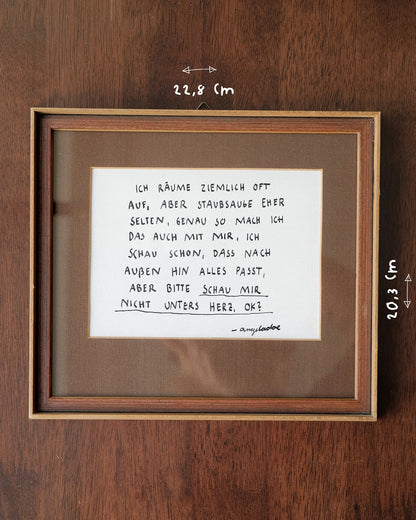 22,8 Cm
ICH RÄUME ZIEMLICH OFT
AUF, ABER STAUBSAUGE EHER
SELTEN, GENAU SO MACH ICH
DAS AUCH MIT MIR, ICH
SCHAU SCHON, DASS NACH
AUßEN HIN ALLES PASST,
ABER BITTE SCHAU MIR
NICHT UNTERS HERZ, OK?
20,3 Cm